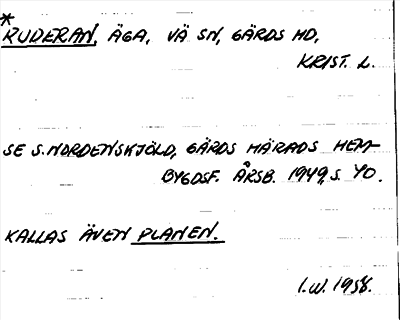 *
RUDERAN, ÄGA, VÄ SN, GÄRDS HD,
KRIST. L.
SE S. NORDENSKJÖLD, GÄRDS HÄRADS HEM-
BYGDSF. ÅRSB. 1949, S. 40.
KALLAS ÄVEN PLANEN.
I.W. 1958.